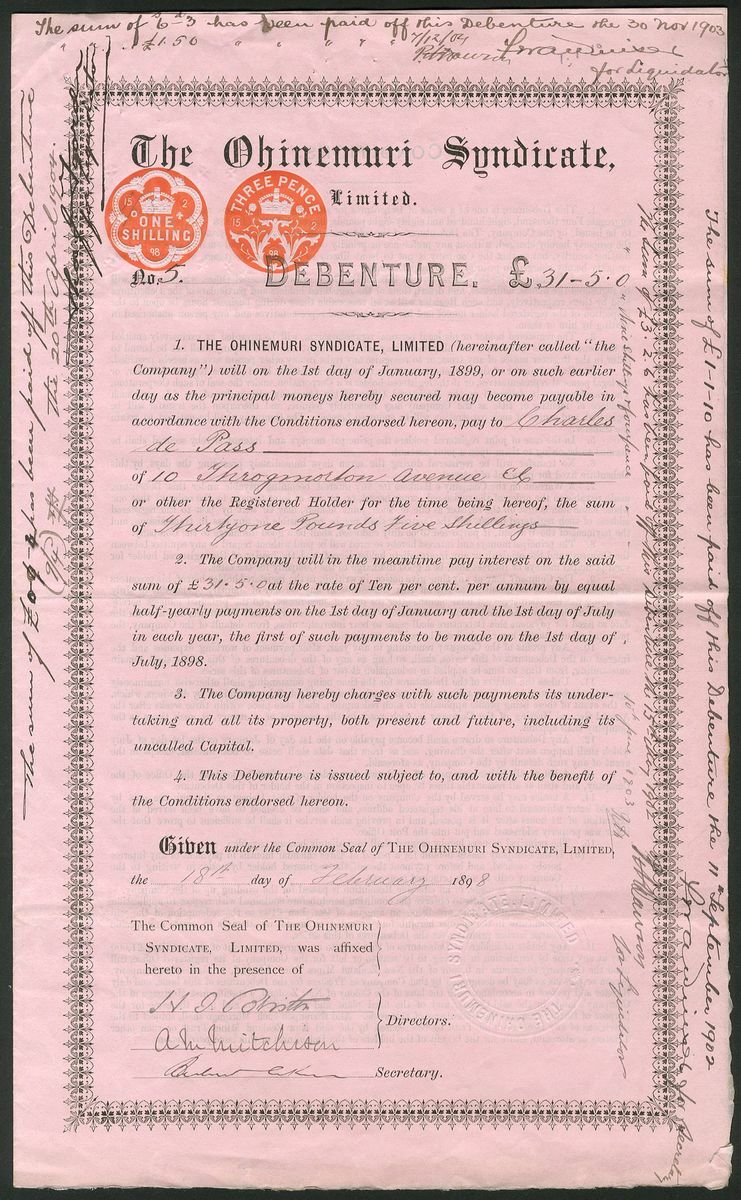 The sum of £ 6 - 3 has been paid off this Debenture the 30 Nov 1903
" " £1.50 " " " " " 7/12/04
for Liquidator
The Ohinemuri Syndicate,
Limited.
ONE SHILLING
15 2
98
THREE PENCE
15 2
98
No. 5. DEBENTURE. £ 31-5-0
1. THE OHINEMURI SYNDICATE, LIMITED (hereinafter called "the
Company") will on the 1st day of January, 1899, or on such earlier
day as the principal moneys hereby secured may become payable in
accordance with the Conditions endorsed hereon, pay to Charles
de Pass
of 10 Throgmorton Avenue EC
or other the Registered Holder for the time being hereof, the sum
of Thirtyone Pounds Five Shillings
2. The Company will in the meantime pay interest on the said
sum of £31.5.0 at the rate of Ten per cent. per annum by equal
half-yearly payments on the 1st day of January and the 1st day of July
in each year, the first of such payments to be made on the 1st day of
July, 1898.
3. The Company hereby charges with such payments its under-
taking and all its property, both present and future, including its
uncalled Capital.
4. This Debenture is issued subject to, and with the benefit of
the Conditions endorsed hereon.
Given under the Common Seal of THE OHINEMURI SYNDICATE, LIMITED,
the 18th day of February 1898
The Common Seal of THE OHINEMURI
SYNDICATE, LIMITED, was affixed
hereto in the presence of
A M Mitchison
Directors.
Secretary.
THE OHINEMURI SYNDICATE LIMITED
The sum of has been paid off this Debenture
The 20th April 1904.
The sum of £3.2.6 has been paid off this Debenture the
10th June 1903
for Liquidator
The sum of £1-1-10 has been paid off this Debenture the 11th September 1902
for Secretary